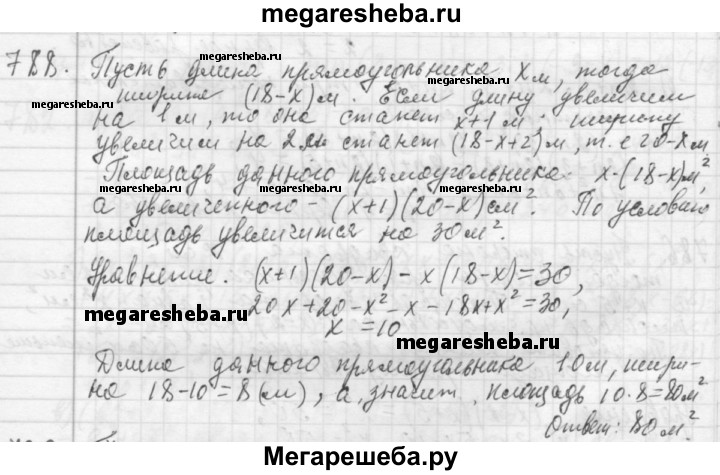 megaresheba.ru
788. Пусть длина прямоугольника x м, тогда
megaresheba.ru
ширина (18-x) м. Если длину увеличим
на 1 м, то она станет x+1 м, ширину
megaresheba.ru
увеличим на 2 м станет (18-x+2) м, т.е 20-x м
Площадь данного прямоугольника x·(18-x) м²,
а увеличенного - (x+1)(20-x) см². По условию
площадь увеличится на 30 м².
Уравнение. (x+1)(20-x) - x(18-x)=30,
20x+20-x²-x-18x+x²=30,
megaresheba.ru
x=10
megaresheba.ru
Длина данного прямоугольника 10 м, шири-
на 18-10=8 (м), а, значит, площадь 10·8=80 м²
Ответ: 80 м².
Мегарешеба.ру